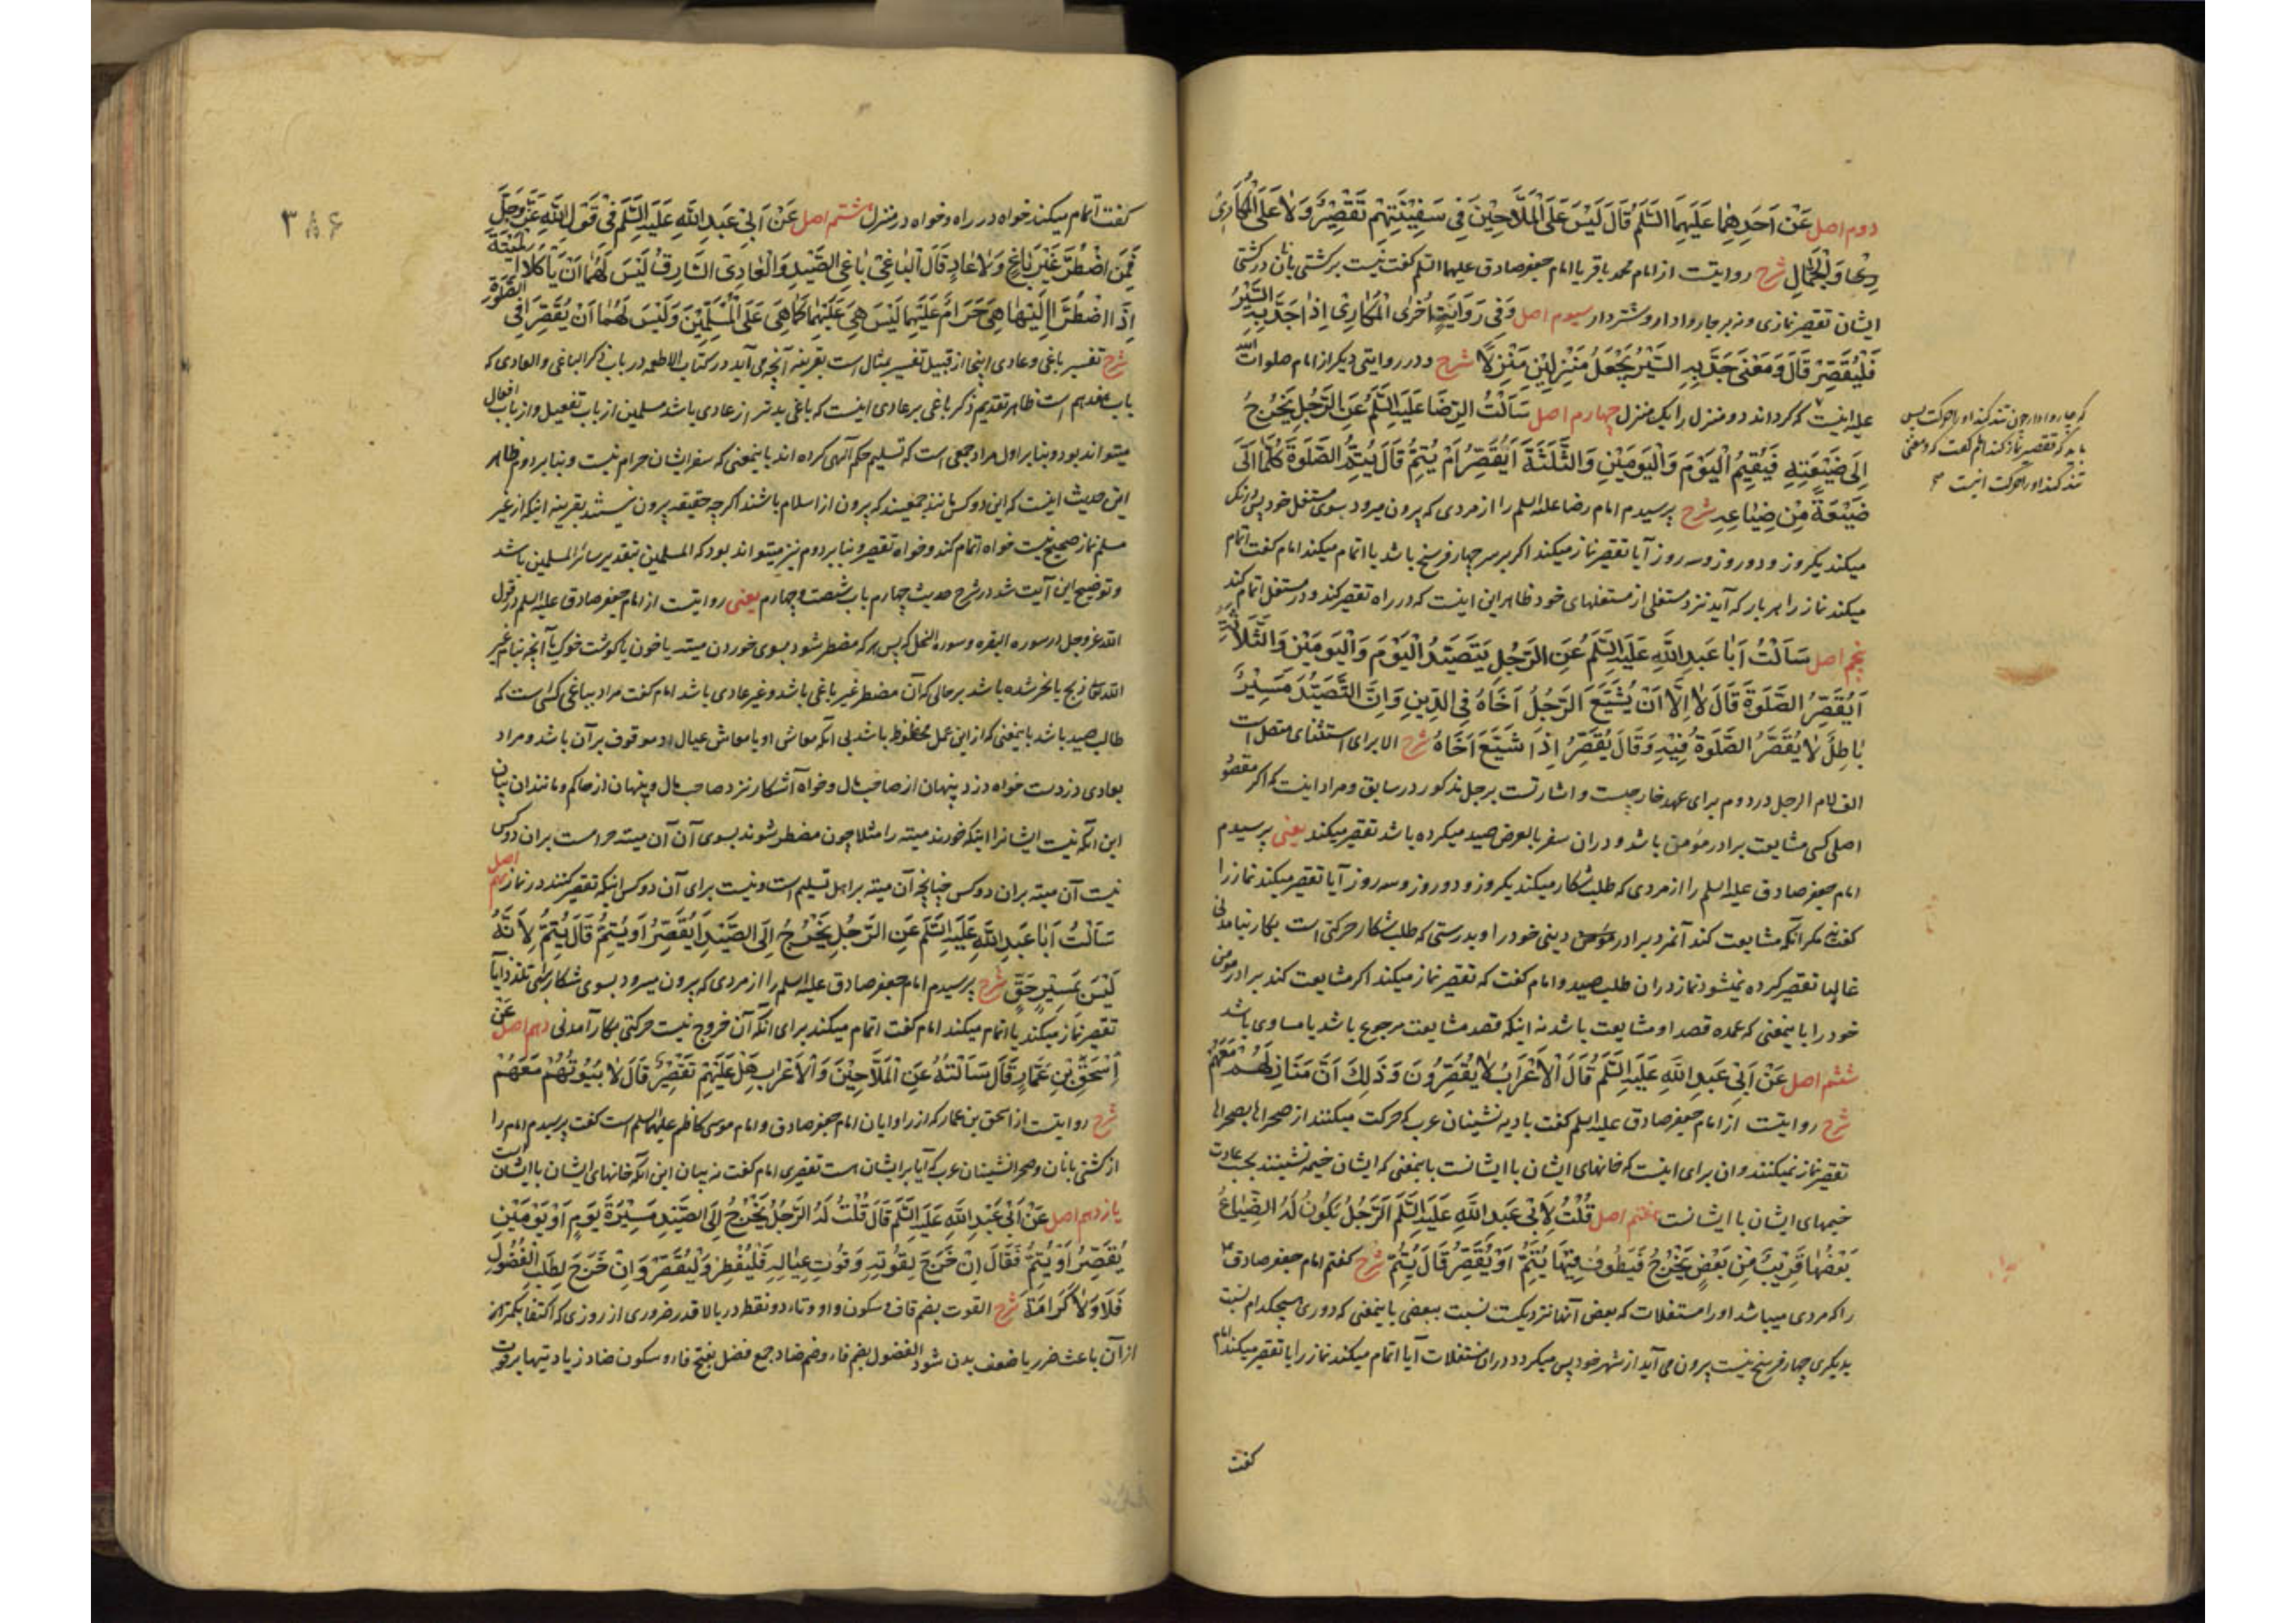 دوم اصل عَنْ اَحَدِهِمَا عَلَيْهِمَا السَّلَمُ قَالَ لَيْسَ عَلَى الْمَلَّاحِيْنَ فِي سَفِيْنَتِهِمْ تَقْصِيْرٌ وَلَا عَلَى الْمُكَارِيْ
وَالْجَمَّالِ شرح روایتست از امام محمد باقر یا امام جعفر صادق علیهما السلم گفت نیست بر کشتی بانان در کشتی
ایشان تقصیر نمازی و نه بر چاروادار و شتردار سیوم اصل وَفِي رِوَايَةٍ اُخْرٰى الْمُكَارِيْ اِذَا جَدَّ بِهِ السَّيْرُ
فَلْيُقَصِّرْ قَالَ وَمَعْنٰى جَدَّ بِهِ السَّيْرُ يَجْعَلُ مَنْزِلَيْنِ مَنْزِلًا شرح و در روایتی دیگر از امام صلوات الله
علیه اینست که گرداند دو منزل را یک منزل چهارم اصل سَاَلْتُ الرِّضَا عَلَيْهِ السَّلَمُ عَنِ الرَّجُلِ يَخْرُجُ
اِلٰى ضَيْعَتِهِ فَيُقِيْمُ الْيَوْمَ وَالْيَوْمَيْنِ وَالثَّلٰثَةَ اَيُقَصِّرُ اَمْ يُتِمُّ قَالَ يُتِمُّ الصَّلٰوةَ كُلَّمَا اَتٰى
ضَيْعَةً مِنْ ضِيَاعِهِ شرح پرسیدم امام رضا علیه السلم را از مردی که بیرون میرود بسوی مستغل خود پس درنگ
میکند یکروز و دو روز و سه روز آیا تقصیر نماز میکند اگر بر سر چهار فرسخ باشد یا اتمام میکند امام گفت اتمام
میکند نماز را هر بار که آید نزد مستغلی از مستغلهای خود ظاهر این اینست که در راه تقصیر کند و در مستغل اتمام کند
پنجم اصل سَاَلْتُ اَبَا عَبْدِ اللهِ عَلَيْهِ السَّلَمُ عَنِ الرَّجُلِ يَتَصَيَّدُ الْيَوْمَ وَالْيَوْمَيْنِ وَالثَّلَاثَةَ
اَيُقَصِّرُ الصَّلٰوةَ قَالَ لَا اِلَّا اَنْ يُشَيِّعَ الرَّجُلُ اَخَاهُ فِي الدِّيْنِ وَاِنَّ التَّصَيُّدَ مَسِيْرٌ
بَاطِلٌ لَا يُقَصَّرُ الصَّلٰوةُ فِيْهِ وَقَالَ يُقَصِّرُ اِذَا شَيَّعَ اَخَاهُ شرح الا برای استثنای متصل است
الف لام الرجل در دوم برای عهد خارجیست و اشارتست برجل مذکور در سابق و مراد اینست که اگر مقصود
اصلی کسی مشایعت برادر مؤمن باشد و در آن سفر بالعرض صید میکرده باشد تقصیر میکند یعنی پرسیدم
امام جعفر صادق علیه السلم را از مردی که طلب شکار میکند یکروز و دو روز و سه روز آیا تقصیر میکند نماز را
گفت نه مگر آنکه مشایعت کند آنمرد برادر مؤمن دینی خود را و بدرستی که طلب شکار حرکتی است بکار نیامدنی
غالبا تقصیر کرده نمیشود نماز در آن طلب صید و امام گفت که تقصیر نماز میکند اگر مشایعت کند برادر مؤمن
خود را باینمعنی که عمده قصد او مشایعت باشد نه اینکه قصد مشایعت مرجوع باشد یا مساوی باشد
ششم اصل عَنْ اَبِيْ عَبْدِ اللهِ عَلَيْهِ السَّلَمُ قَالَ الْاَعْرَابُ لَا يُقَصِّرُوْنَ وَذٰلِكَ اَنَّ مَنَازِلَهُمْ مَعَهُمْ
شرح روایتست از امام جعفر صادق علیه السلم گفت بادیه نشینان عرب که حرکت میکنند از صحراها بصحراها
تقصیر نماز نمیکنند و آن برای اینست که خانهای ایشان با ایشانست باینمعنی که ایشان خیمه نشینند بحسب عادت
خیمهای ایشان با ایشانست هفتم اصل قُلْتُ لِاَبِيْ عَبْدِ اللهِ عَلَيْهِ السَّلَمُ الرَّجُلُ يَكُوْنُ لَهُ الضِّيَاعُ
بَعْضُهَا قَرِيْبٌ مِنْ بَعْضٍ يَخْرُجُ فَيَطُوْفُ فِيْهَا يُتِمُّ اَوْ يُقَصِّرُ قَالَ يُتِمُّ شرح گفتم امام جعفر صادق
را که مردی میباشد او را مستغلات که بعض آنها نزدیکست نسبت ببعضی باینمعنی که دوری هیچکدام نسبت
بدیگری چهار فرسخ نیست بیرون می آید از شهر خود پس میگردد در آن مستغلات آیا اتمام میکند نماز را یا تقصیر میکند امام
گفت
که چاروادار چون تند کند او را حرکت پس
باید که تقصیر نماز کند امام گفت که و معنی
تند کند او را حرکت اینست
۳۸۶
گفت اتمام میکند خواه در راه و خواه در منزل هشتم اصل عَنْ اَبِيْ عَبْدِ اللهِ عَلَيْهِ السَّلَمُ فِيْ قَوْلِ اللهِ عَزَّ وَجَلَّ
فَمَنِ اضْطُرَّ غَيْرَ بَاغٍ وَلَا عَادٍ قَالَ الْبَاغِيْ بَاغِي الصَّيْدِ وَالْعَادِي السَّارِقُ لَيْسَ لَهُمَا اَنْ يَاْكُلَا الْمَيْتَةَ
اِذَا اضْطُرَّا اِلَيْهَا هِيَ حَرَامٌ عَلَيْهِمَا لَيْسَ هِيَ عَلَيْهِمَا كَمَا هِيَ عَلَى الْمُسْلِمِيْنَ وَلَيْسَ لَهُمَا اَنْ يُقَصِّرَا فِي الصَّلٰوةِ
شرح تفسیر باغی و عادی اینجا از قبیل تفسیر بمثال است بقرینه آنچه می آید در کتاب الاطعمه در باب ذکر الباغی و العادی که
باب هفدهم است ظاهر تقدیم ذکر باغی بر عادی اینست که باغی بدتر از عادی باشد مسلمین از باب تفعیل و از باب افعال
میتواند بود و بنا بر اول مراد جمعی است که تسلیم حکم الهی کرده اند باینمعنی که سفر ایشان حرام نیست و بنا بر دوم ظاهر
این حدیث اینست که این دو کس مانند جمعیند که بیرون از اسلام باشند اگرچه حقیقه بیرون نیستند بقرینه اینکه از غیر
مسلم نماز صحیح نیست خواه اتمام کند و خواه تقصیر و بنا بر دوم نیز میتواند بود که المسلمین بتقدیر سائر المسلمین باشد
و توضیح این آیت شد در شرح حدیث چهارم باب شصت و چهارم یعنی روایتست از امام جعفر صادق علیه السلم در قول
الله عز وجل در سوره البقره و سوره النحل که پس هر که مضطر شود بسوی خوردن میته یا خون یا گوشت خوک یا آنچه بنام غیر
الله تعالی ذبح یا نحر شده باشد بر حالی که آن مضطر غیر باغی باشد و غیر عادی باشد امام گفت مراد بباغی کسی است که
طالب صید باشد باینمعنی که از این عمل محظوظ باشد بی آنکه معاش او یا معاش عیال او موقوف بر آن باشد و مراد
بعادی دزدست خواه دزد پنهان از صاحب مال و خواه آشکار نزد صاحب مال و پنهان از حاکم و مانند آن بیان
این آنکه نیست ایشانرا اینکه خورند میته را مثلا چون مضطر شوند بسوی آن آن میته حرامست بر آن دو کس
نیست آن میته بر آن دو کس چنانچه آن میته بر اهل تسلیم است و نیست برای آن دو کس اینکه تقصیر کنند در نماز نهم اصل
سَاَلْتُ اَبَا عَبْدِ اللهِ عَلَيْهِ السَّلَمُ عَنِ الرَّجُلِ يَخْرُجُ اِلَى الصَّيْدِ اَيُقَصِّرُ اَوْ يُتِمُّ قَالَ يُتِمُّ لِاَنَّهُ
لَيْسَ بِمَسِيْرِ حَقٍّ شرح پرسیدم امام جعفر صادق علیه السلم را از مردی که بیرون میرود بسوی شکار برای تلذذ آیا
تقصیر نماز میکند یا اتمام میکند امام گفت اتمام میکند برای آنکه آن خروج نیست حرکتی بکار آمدنی دهم اصل عَنْ
اِسْحٰقَ بْنِ عَمَّارٍ قَالَ سَاَلْتُهُ عَنِ الْمَلَّاحِيْنَ وَالْاَعْرَابِ هَلْ عَلَيْهِمْ تَقْصِيْرٌ قَالَ لَا بُيُوْتُهُمْ مَعَهُمْ
شرح روایتست از اسحق بن عمار که از راویان امام جعفر صادق و امام موسی کاظم علیهما السلم است گفت پرسیدم امام را
از کشتی بانان و صحرانشینان عرب که آیا بر ایشان است تقصیری امام گفت نه بیان این آنکه خانهای ایشان با ایشان است
یازدهم اصل عَنْ اَبِيْ عَبْدِ اللهِ عَلَيْهِ السَّلَمُ قَالَ قُلْتُ لَهُ الرَّجُلُ يَخْرُجُ اِلَى الصَّيْدِ مَسِيْرَةَ يَوْمٍ اَوْ يَوْمَيْنِ
يُقَصِّرُ اَوْ يُتِمُّ فَقَالَ اِنْ خَرَجَ لِقُوْتِهِ وَقُوْتِ عِيَالِهِ فَلْيُفْطِرْ وَلْيُقَصِّرْ وَاِنْ خَرَجَ لِطَلَبِ الْفُضُوْلِ
فَلَا وَلَا كَرَامَةَ شرح القوت بضم قاف و سکون واو و تاء دو نقطه در بالا قدر ضروری از روزی که اکتفا بکمتر از
از آن باعث ضرر یا ضعف بدن شود الفضول بضم فاء و ضم ضاد جمع فضل بفتح فاء و سکون ضاد زیادتیها بر قوت